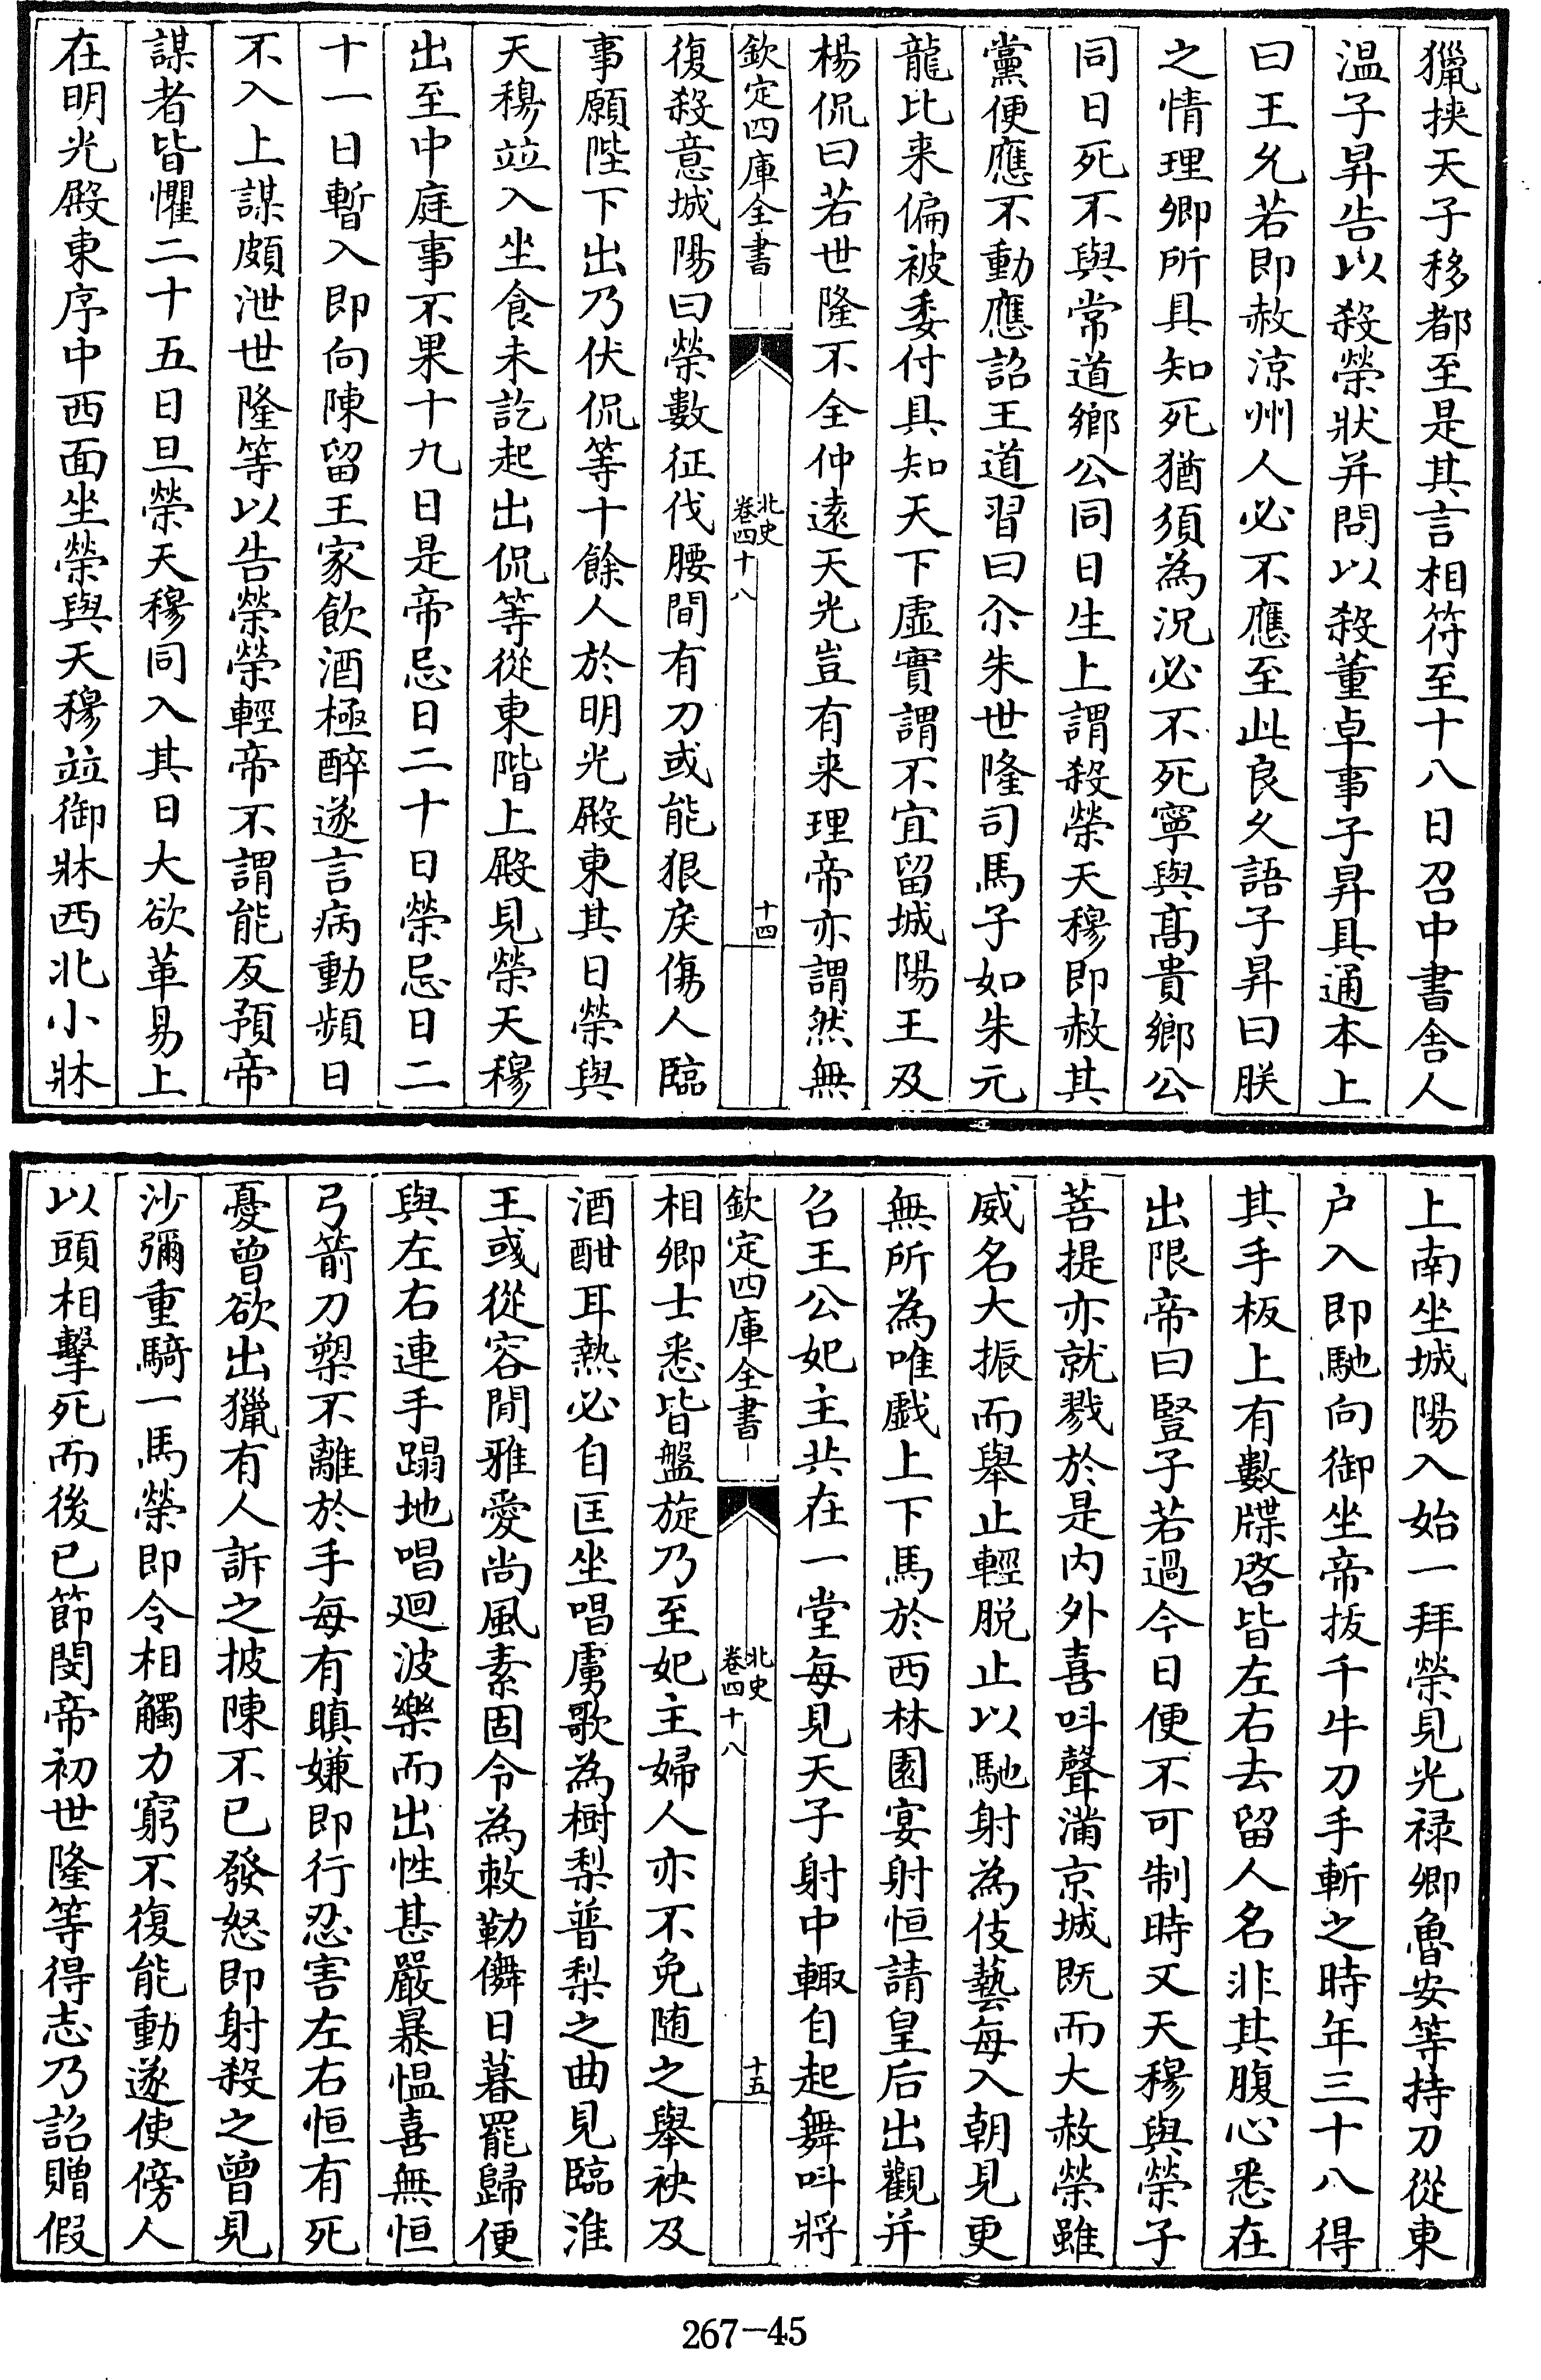 獵挾天子移都至是其言相符至十八日召中書舍人
温子昇告以殺榮狀并問以殺董卓事子昇具通本上
曰王允若即赦凉州人必不應至此良久語子昇曰朕
之情理卿所具知死猶須為況必不死寧與髙貴鄉公
同日死不與常道鄉公同日生上謂殺榮天穆即赦其
黨便應不動應詔王道習曰尒朱世隆司馬子如朱元
龍比来偏被委付具知天下虛實謂不宜留城陽王及
楊侃曰若世隆不全仲遠天光豈有来理帝亦謂然無
欽定四庫全書
北史
卷四十八
十四
復殺意城陽曰榮數征伐腰間有刀或能狠戾傷人臨
事願陛下出乃伏侃等十餘人於明光殿東其日榮與
天穆竝入坐食未訖起出侃等從東階上殿見榮天穆
出至中庭事不果十九日是帝忌日二十日榮忌日二
十一日暫入即向陳留王家飲酒極醉遂言病動頻日
不入上謀頗泄世隆等以告榮榮輕帝不謂能反預帝
謀者皆懼二十五日旦榮天穆同入其日大欲革易上
在明光殿東序中西面坐榮與天穆竝御牀西北小牀
上南坐城陽入始一拜榮見光禄卿魯安等持刀從東
户入即馳向御坐帝拔千牛刀手斬之時年三十八得
其手板上有數牒啓皆左右去留人名非其腹心悉在
出限帝曰豎子若過今日便不可制時又天穆與榮子
菩提亦就戮於是内外喜呌聲滿京城既而大赦榮雖
威名大振而舉止輕脱止以馳射為伎藝每入朝見更
無所為唯戯上下馬於西林園宴射恒請皇后出觀并
召王公妃主共在一堂每見天子射中輙自起舞呌將
欽定四庫全書
北史
卷四十八
十五
相卿士悉皆盤旋乃至妃主婦人亦不免随之舉袂及
酒酣耳熱必自匡坐唱虜歌為樹梨普梨之曲見臨淮
王彧從容閒雅愛尚風素固令為敕勒儛日暮罷歸便
與左右連手蹋地唱廻波樂而出性甚嚴暴愠喜無恒
弓箭刀槊不離於手每有瞋嫌即行忍害左右恒有死
憂曾欲出獵有人訴之披陳不已發怒即射殺之曾見
沙彌重騎一馬榮即令相觸力窮不復能動遂使傍人
以頭相擊死而後已節閔帝初世隆等得志乃詔贈假
267-45